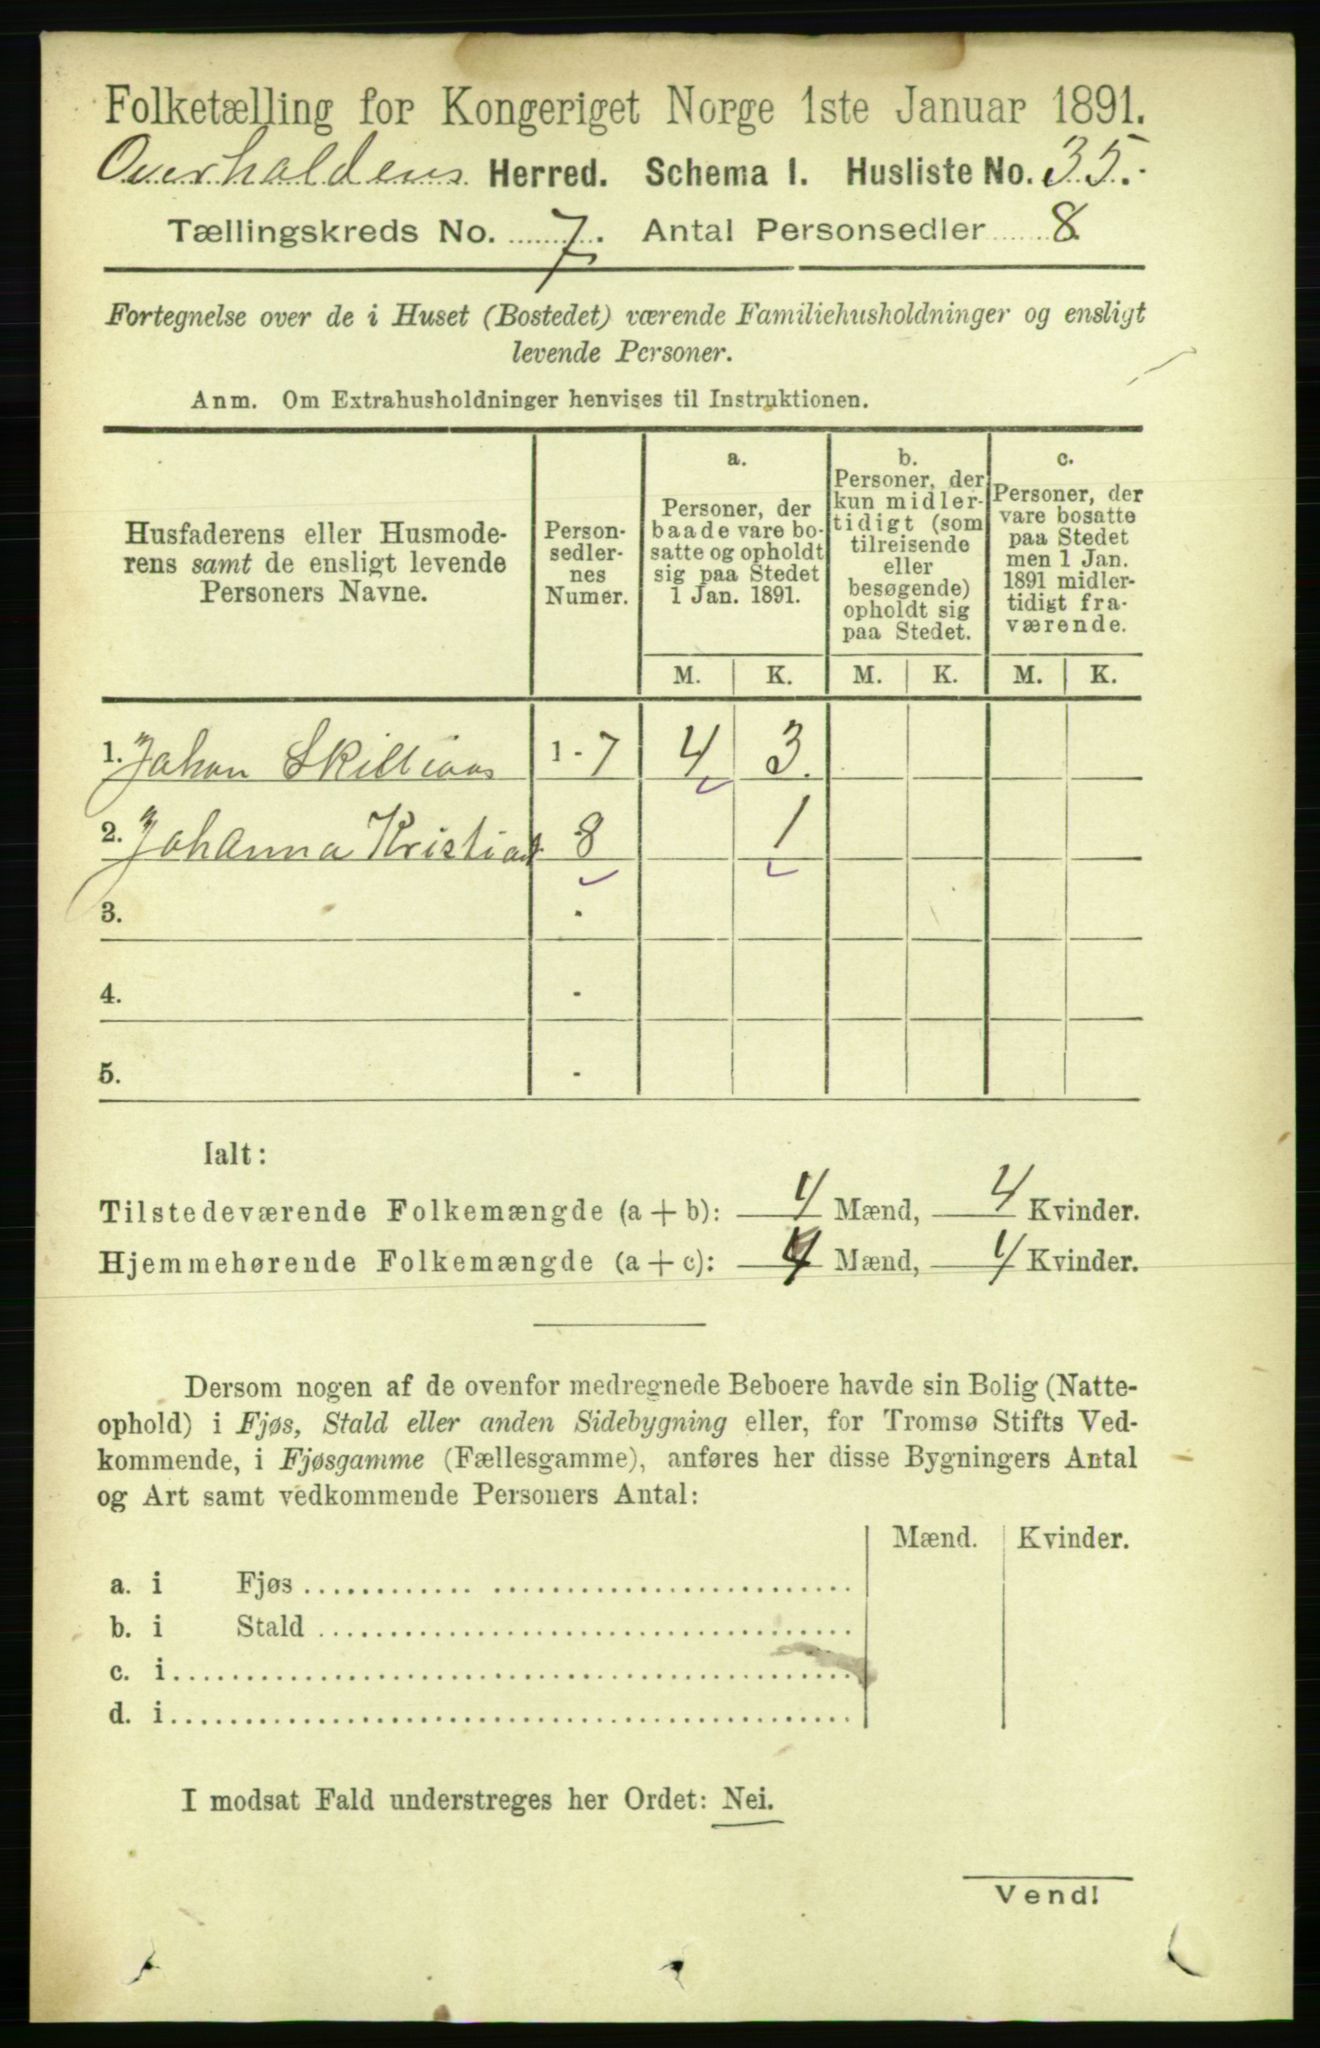 Folketælling for Kongeriget Norge 1ste Januar 1891.
Overhaldens Herred. Schema I. Husliste No. 35.
Tællingskreds No. 7. Antal Personsedler 8
Fortegnelse over de i Huset (Bostedet) værende Familiehusholdninger og ensligt
levende Personer.
Anm. Om Extrahusholdninger henvises til Instruktionen.
Husfaderens eller Husmode-
rens samt de ensligt levende
Personers Navne.
Person-
sedler-
nes
Numer.
a.
Personer, der
baade vare bo-
satte og opholdt
sig paa Stedet
1 Jan. 1891.
b.
Personer, der
kun midler-
tidigt (som
tilreisende
eller
besøgende)
opholdt sig
paa Stedet.
c.
Personer, der
vare bosatte
paa Stedet
men 1 Jan.
1891 midler-
tidigt fra-
værende.
M. K. M. K. M. K.
1. Johan 1 - 7 4 3.
2. Johanna 8 1
3. -
4. -
5. -
Ialt:
Tilstedeværende Folkemængde (a + b): 4 Mænd, 4 Kvinder.
Hjemmehørende Folkemængde (a + c): 4 Mænd, 4 Kvinder.
Dersom nogen af de ovenfor medregnede Beboere havde sin Bolig (Natte-
ophold) i Fjøs, Stald eller anden Sidebygning eller, for Tromsø Stifts Ved-
kommende, i Fjøsgamme (Fællesgamme), anføres her disse Bygningers Antal
og Art samt vedkommende Personers Antal:
Mænd. Kvinder.
a. i Fjøs
b. i Stald
c. i
d. i
I modsat Fald understreges her Ordet: Nei.
Vend!